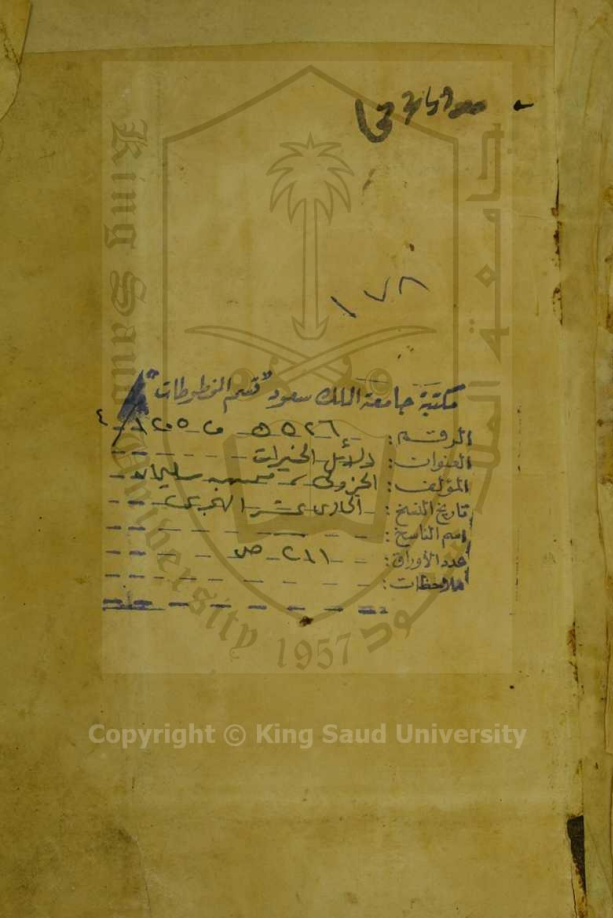 ١٧٨
مكتبة جامعة الملك سعود "قسم المخطوطات"
الرقم: ٥٥٢٦
العنوان: دلائل الخيرات
المؤلف: الجزولي، محمد بن سليمان
تاريخ النسخ: الحادي عشر الهجري
اسم الناسخ:
عدد الأوراق: ٢٨١ ص
ملاحظات:
King Saud University
1957
Copyright © King Saud University